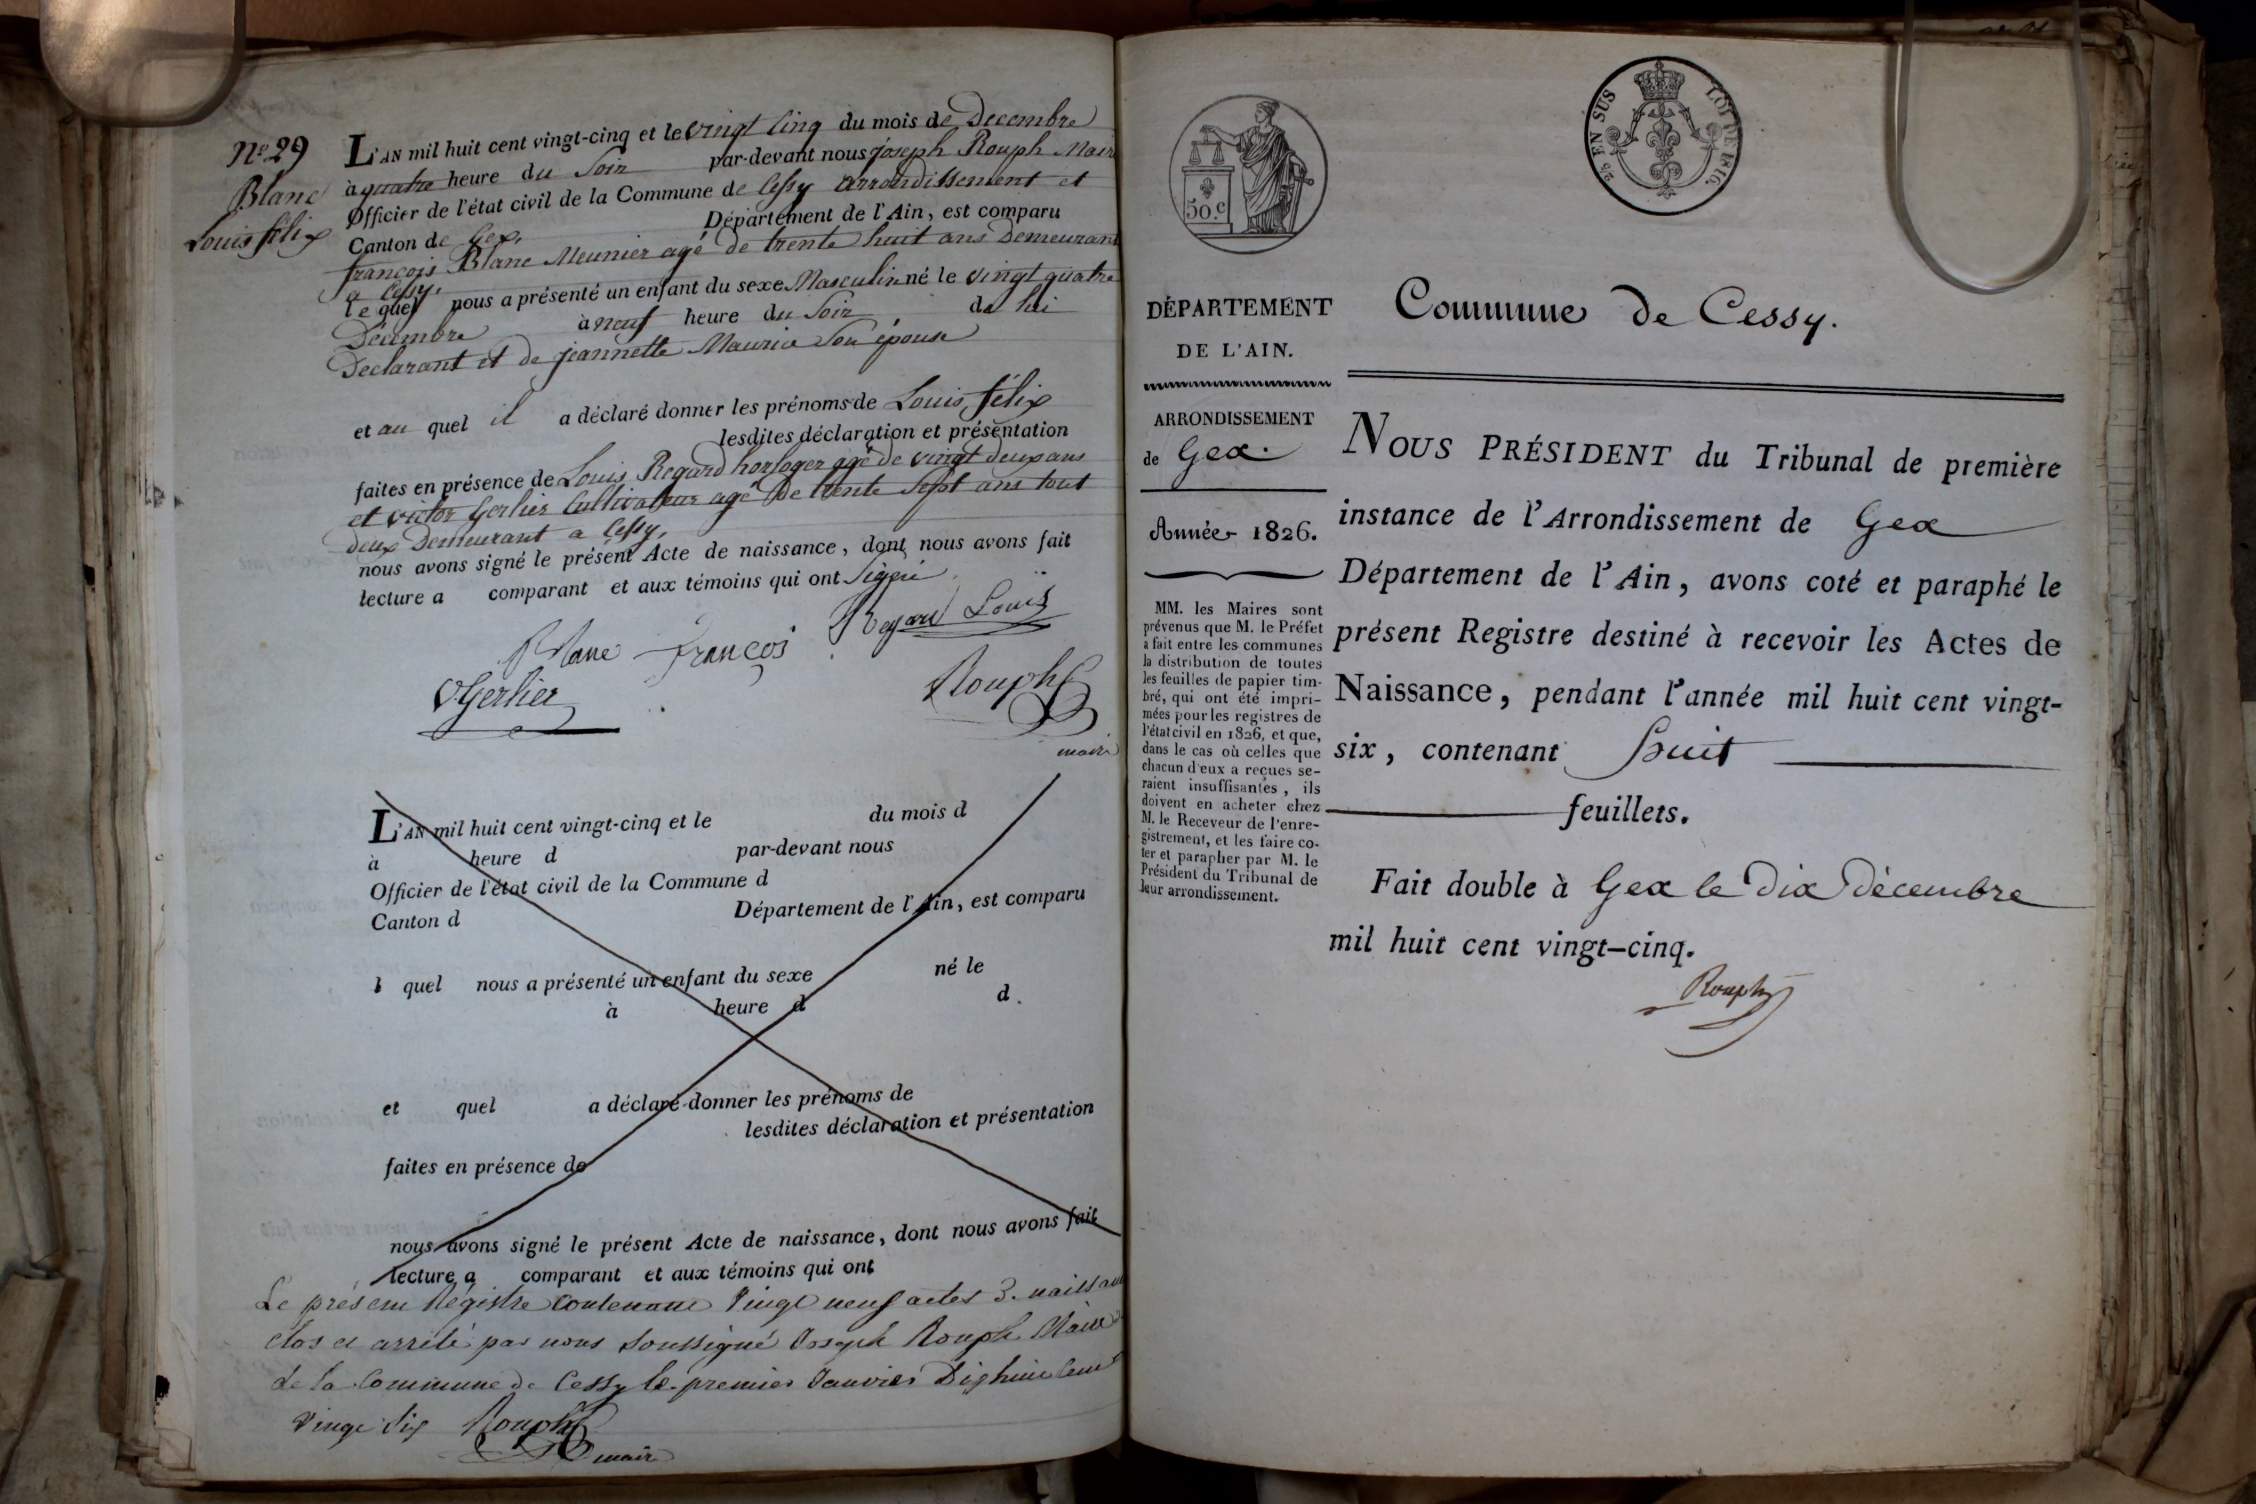 Nº 29
Blanc
Louis félix
L'AN mil huit cent vingt-cinq et le vingt cinq du mois de Decembre
à quatre heure du Soir par-devant nous joseph Rouph Maire
Officier de l'état civil de la Commune de Cessy arrondissement et
Canton de Gex, Département de l'Ain, est comparu
françois Blanc Meunier agé de trente huit ans Demeurant
a Cessy,
le quel nous a présenté un enfant du sexe Masculin né le vingt quatre
Décembre à neuf heure du Soir de lui
Declarant et de jeannette Maurice Son épouse
et au quel il a déclaré donner les prénoms de Louis félix
lesdites déclaration et présentation
faites en présence de Louis Regard horloger agé de vingt deux ans
et victor Gerlier Cultivateur agé de trente Sept ans tout
deux Demeurant a Cessy,
nous avons signé le présent Acte de naissance, dont nous avons fait
lecture a comparant et aux témoins qui ont Signé
Blanc François Regard Louis
VGerlier Rouph
maire
L'AN mil huit cent vingt-cinq et le du mois d
à heure d par-devant nous
Officier de l'état civil de la Commune d
Canton d Département de l'Ain, est comparu
l quel nous a présenté un enfant du sexe né le
à heure d d
et quel a déclaré donner les prénoms de
lesdites déclaration et présentation
faites en présence de
nous avons signé le présent Acte de naissance, dont nous avons fait
lecture a comparant et aux témoins qui ont
Le présent Régistre contenant Vingt neuf actes de naissance
clos et arrêté par nous soussigné Joseph Rouph Maire
de la Commune de Cessy le premier Janvier Dix huit Cent
vingt six Rouph
maire
50.c
25 EN SUS
LOI DE 1816.
DÉPARTEMENT
DE L'AIN.
ARRONDISSEMENT
de Gex.
Année 1826.
MM. les Maires sont
prévenus que M. le Préfet
a fait entre les communes
la distribution de toutes
les feuilles de papier tim-
bré, qui ont été impri-
mées pour les registres de
l'état civil en 1826, et que,
dans le cas où celles que
chacun d'eux a reçues se-
raient insuffisantes, ils
doivent en acheter chez
M. le Receveur de l'enre-
gistrement, et les faire co-
ter et parapher par M. le
Président du Tribunal de
leur arrondissement.
Commune de Cessy.
NOUS PRÉSIDENT du Tribunal de première
instance de l'Arrondissement de Gex
Département de l'Ain, avons coté et paraphé le
présent Registre destiné à recevoir les Actes de
Naissance, pendant l'année mil huit cent vingt-
six, contenant huit
feuillets.
Fait double à Gex le Dix décembre
mil huit cent vingt-cinq.
Rouph